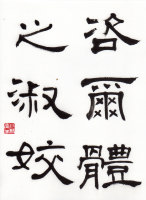 咨爾體
之淑姣